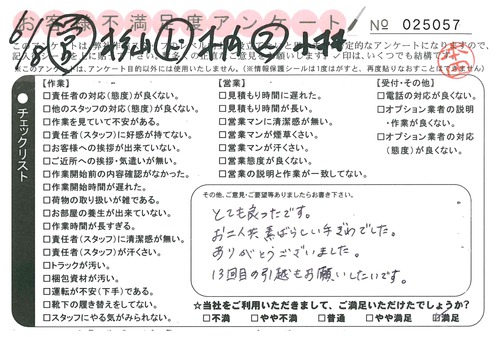 お客様不満足度アンケート
No 025057
6/8
※このアンケートは、アンケート目的以外には使用いたしません。(※情報保護シールは1度はがすと、再度貼りなおすことはできません)
チェックリスト
【作業】
□責任者の対応(態度)が良くない。
□他のスタッフの対応(態度)が良くない。
□作業を見ていて不安がある。
□責任者(スタッフ)に好感が持てない。
□お客様への挨拶が出来ていない。
□ご近所への挨拶・気遣いが無い。
□作業開始前の内容確認がなかった。
□作業開始時間が遅れた。
□荷物の取り扱いが雑である。
□お部屋の養生が出来ていない。
□作業時間が長すぎる。
□責任者(スタッフ)に清潔感が無い。
□責任者(スタッフ)が汗くさい。
□トラックが汚い。
□梱包資材が汚い。
□運転が不安(下手)である。
□靴下の履き替えをしてない。
□スタッフにやる気がみられない。
【営業】
□見積もり時間に遅れた。
□見積もり時間が長い。
□営業マンに清潔感が無い。
□営業マンが煙草くさい。
□営業マンが汗くさい。
□営業態度が良くない。
□営業の説明と作業が一致してない。
【受付・その他】
□電話の対応が良くない。
□オプション業者の説明・作業が良くない。
□オプション業者の対応(態度)が良くない。
その他、ご意見・ご要望等ありましたらお書き下さい。
とても良かったです。
お二人共素ばらしい手ぎわでした。
ありがとうございました。
13回目の引越もお願いしたいです。
☆当社をご利用いただきまして、ご満足いただけたでしょうか?
□不満 □やや不満 □普通 □やや満足 ☑満足